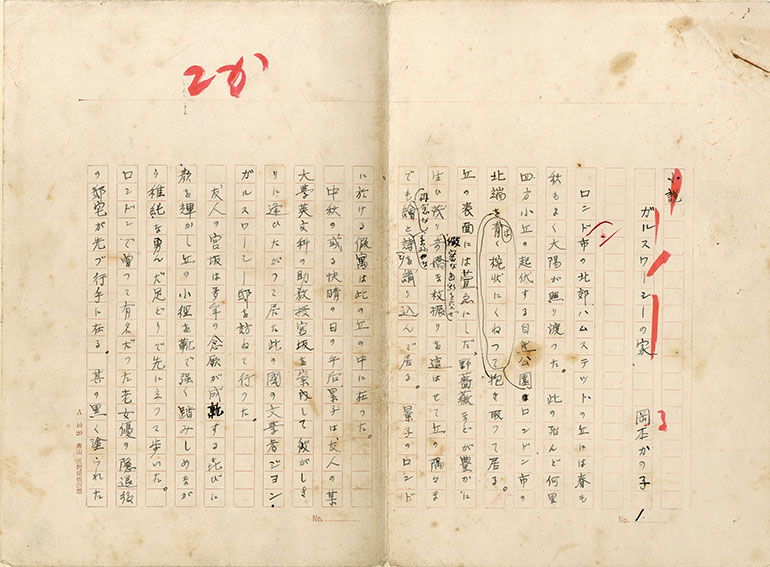 2か
小説
ガルスワーシーの家
岡本かの子
ロンド市の北郊ハムステットの丘には春も
秋もよく太陽が照り渡つた。此の殆んど何里
四方小丘の起伏する自然公園はロンドン市の
北端を蒼く椀状にくねつて抱き取つて居る。
丘の表面には萱、えにしだ、野薔薇などが豊かに
生ひ茂り、緻密な色彩を交ぜ奇橋な枝振りを這はせて丘の隅々ま
でも絵と詩を織り込んで居る。景子のロンド
に於ける仮寓は此の丘の中に在つた。
中秋の或る快晴の日の午后、景子は、友人の某
大学英文科の助教授宮坂を案内して彼がしき
りに逢ひたがつて居た此の国の文学者ジヨン・
ガルスワーシー邸を訪ねて行つた。
友人の宮坂は多年の念願が成就する喜びに
顔を輝かし丘の小径を靴で強く踏みしめなが
ら稚純な勇んだ足どりで先に立つて歩いた。
ロンドンで曾つて有名だつた老女優の隠退後
の邸宅が先づ行手に在る。其の黒く塗られた
No. 1
No.